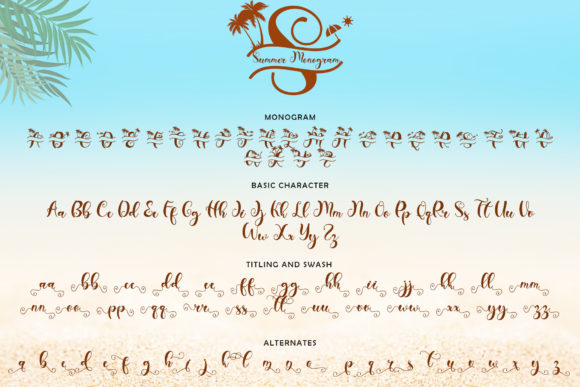 Summer Monogram
MONOGRAM
A B C D E F G H I J K L M N O P Q R S T U V
W X Y Z
BASIC CHARACTER
Aa Bb Cc Dd Ee Ff Gg Hh Ii Jj Kk Ll Mm Nn Oo Pp Qq Rr Ss Tt Uu Vv
Ww Xx Yy Zz
TITLING AND SWASH
aa bb cc dd ee ff gg hh ii jj kk ll mm
nn oo pp qq rr ss tt uu vv ww xx yy zz
ALTERNATES
a b c d e f g h i j k l m n o p q r s t u v w x y z